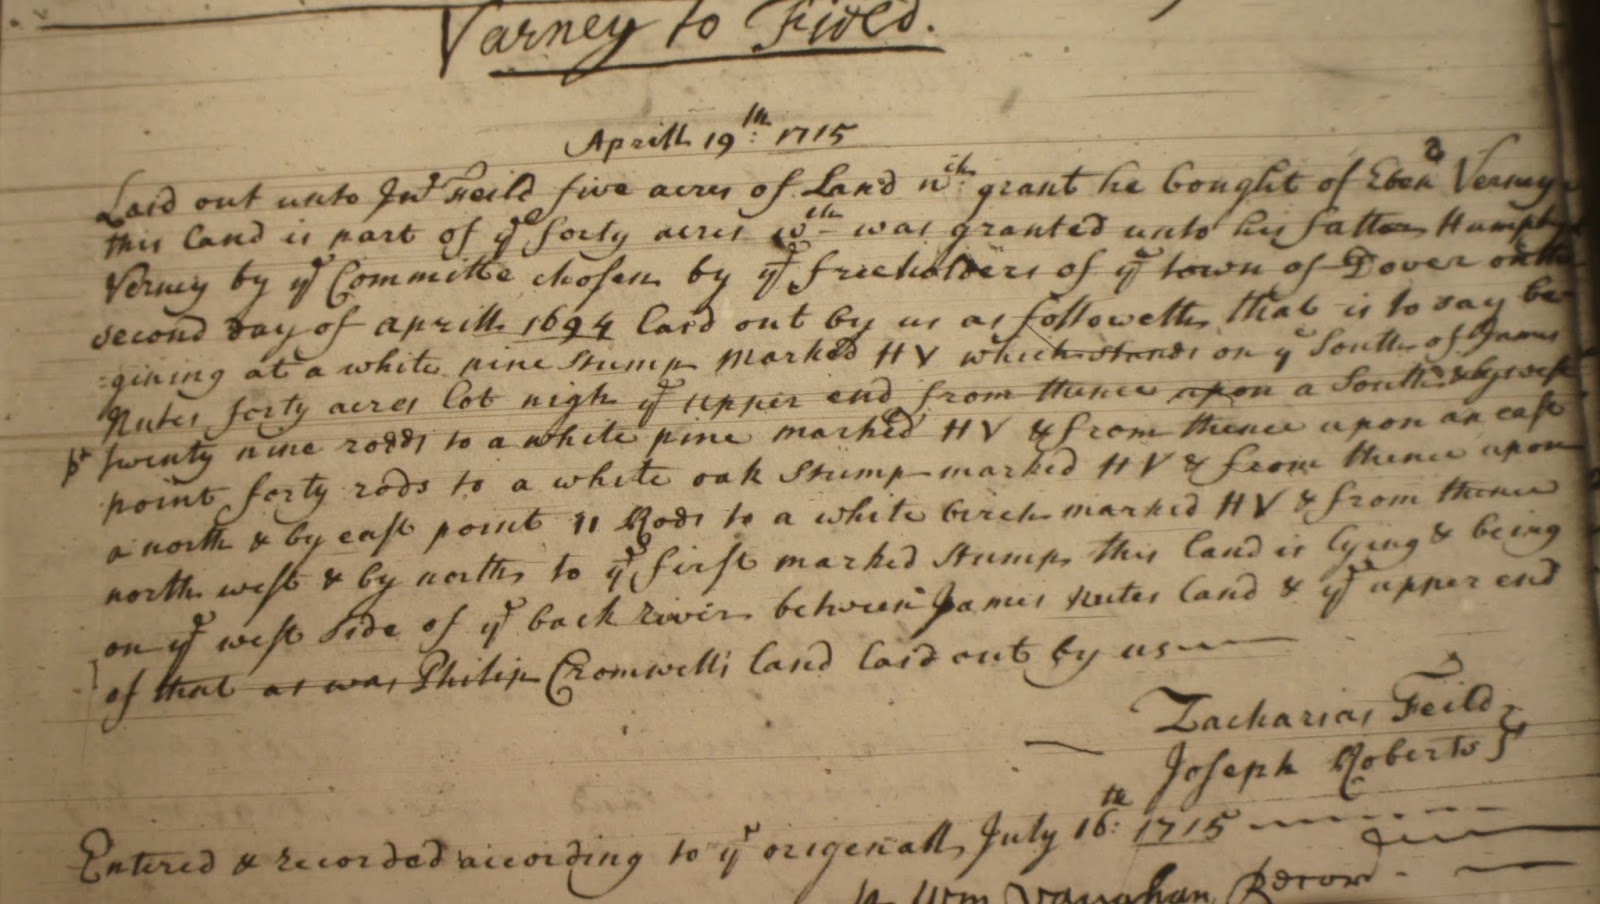 Varney to Field.
Aprill 19th: 1715
Laid out unto Jno Feild five acres of Land wch: grant he bought of Eben Verney
this land is part of ye forty acres wch was granted unto his father Humphry
Verney by ye Committe chosen by ye freeholders of ye town of Dover on the
second day of aprill 1694 laid out by us as followeth that is to say be
gining at a white pine stump marked HV which stands on ye South of James
Nutes forty acres lot nigh ye upper end from thence upon a South & by west
pt twenty nine rodds to a white pine marked HV & from thence upon an east
point forty rods to a white oak stump marked HV & from thence upon
a north & by east point 11 Rods to a white birch marked HV & from thence
north west & by north to ye first marked stump this land is lying & being
on ye west side of ye back river between James Nutes land & ye upper end
of that as was Philip Cromwells land laid out by us
Zacharias Feild
Joseph Roberts
Entered & recorded according to ye origenall July 16th: 1715
Wm Vaughan Record